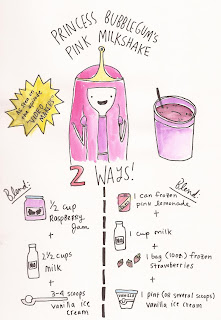 PRINCESS BUBBLEGUM'S
PINK MILKSHAKE
VIDEO MAKERS
2 WAYS!
Blend:
1/2 cup
Raspberry
Jam
+
2 1/2 cups
milk
+
3-4 scoops
vanilla ice
cream
Blend:
1 can frozen
pink lemonade
+
1 cup milk
+
1 bag (10oz) frozen
strawberries
+
1 pint (or several scoops)
vanilla ice cream